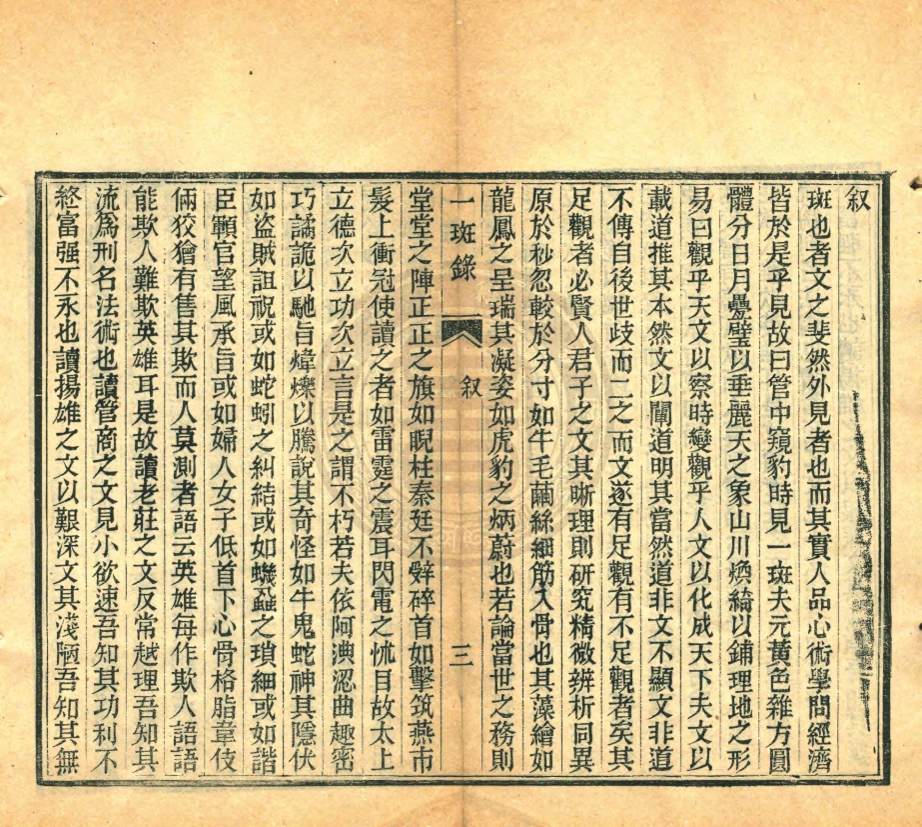 叙
斑也者文之斐然外見者也而其實人品心術學問經濟
皆於是乎見故曰管中窺豹時見一斑夫元黃色雜方圓
體分日月疊璧以垂麗天之象山川煥綺以鋪理地之形
易曰觀乎天文以察時變觀乎人文以化成天下夫文以
載道推其本然文以闡道明其當然道非文不顯文非道
不傳自後世歧而二之而文遂有足觀有不足觀者矣其
足觀者必賢人君子之文其晰理則研究精微辨析同異
原於秒忽較於分寸如牛毛繭絲細筋入骨也其藻繪如
龍鳳之呈瑞其凝姿如虎豹之炳蔚也若論當世之務則
一斑錄
叙
三
堂堂之陣正正之旗如睨柱秦廷不辤碎首如擊筑燕市
髮上衝冠使讀之者如雷霆之震耳閃電之怵目故太上
立德次立功次立言是之謂不朽若夫依阿淟涊曲趣密
巧譎詭以馳旨煒爍以騰說其奇怪如牛鬼蛇神其隱伏
如盜賊詛祝或如蛇蚓之糾結或如蟣蝨之瑣細或如諧
臣顐官望風承旨或如婦人女子低首下心骨格脂韋伎
倆狡獪有售其欺而人莫測者語云英雄每作欺人語語
能欺人難欺英雄耳是故讀老莊之文反常越理吾知其
流爲刑名法術也讀管商之文見小欲速吾知其功利不
終富强不永也讀揚雄之文以艱深文其淺陋吾知其無